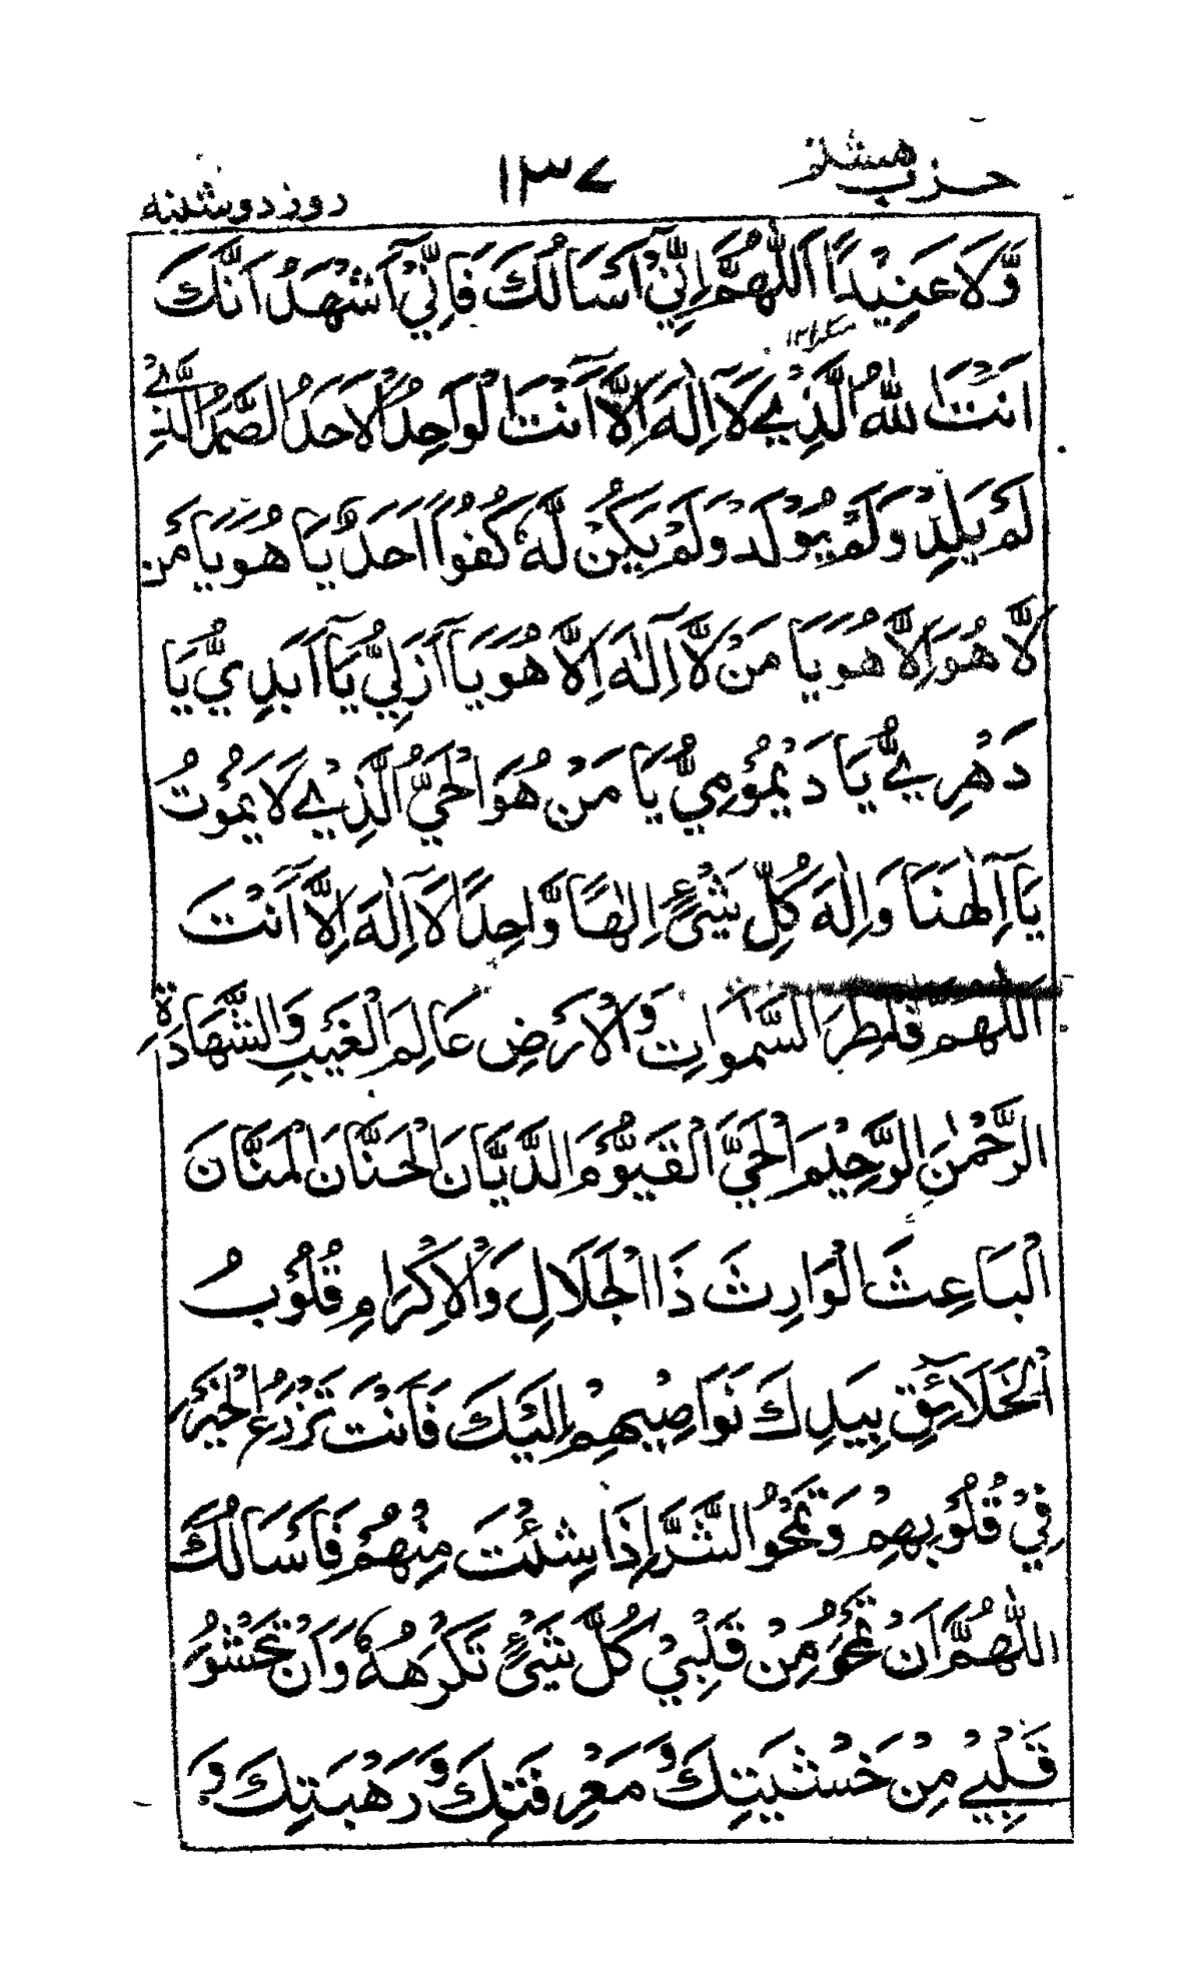 حزب هشتم
١٣٧
روز دوشنبه
وَّلَا عَنِيْدًا اَللّٰهُمَّ اِنِّيْٓ اَسْاَلُكَ فَاِنِّيْٓ اَشْهَدُ اَنَّكَ
اَنْتَ اللّٰهُ الَّذِيْ لَآ اِلٰهَ اِلَّآ اَنْتَ الْوَاحِدُ الْاَحَدُ الصَّمَدُ الَّذِيْ
لَمْ يَلِدْ وَلَمْ يُوْلَدْ وَلَمْ يَكُنْ لَّهٗ كُفُوًا اَحَدٌ يَا هُوَ يَا مَنْ
لَّا هُوَ اِلَّا هُوَ يَا مَنْ لَّآ اِلٰهَ اِلَّا هُوَ يَآ اَزَلِيُّ يَآ اَبَدِيُّ يَا
دَهْرِيُّ يَا دَيْمُوْمِيُّ يَا مَنْ هُوَ الْحَيُّ الَّذِيْ لَا يَمُوْتُ
يَآ اِلٰهَنَا وَاِلٰهَ كُلِّ شَيْءٍ اِلٰهًا وَّاحِدًا لَآ اِلٰهَ اِلَّآ اَنْتَ
اَللّٰهُمَّ فَاطِرَ السَّمٰوَاتِ وَالْاَرْضِ عَالِمَ الْغَيْبِ وَالشَّهَادَةِ
الرَّحْمٰنَ الرَّحِيْمَ الْحَيَّ الْقَيُّوْمَ الدَّيَّانَ الْحَنَّانَ الْمَنَّانَ
الْبَاعِثَ الْوَارِثَ ذَا الْجَلَالِ وَالْاِكْرَامِ قُلُوْبُ
الْخَلَآئِقِ بِيَدِكَ نَوَاصِيْهِمْ اِلَيْكَ فَاَنْتَ تَزْرَعُ الْخَيْرَ
فِيْ قُلُوْبِهِمْ وَتَمْحُو الشَّرَّ اِذَا شِئْتَ مِنْهُمْ فَاَسْاَلُكَ
اللّٰهُمَّ اَنْ تَمْحُوَ مِنْ قَلْبِيْ كُلَّ شَيْءٍ تَكْرَهُهٗ وَاَنْ تَحْشُوَ
قَلْبِيْ مِنْ خَشْيَتِكَ وَمَعْرِفَتِكَ وَرَهْبَتِكَ وَ